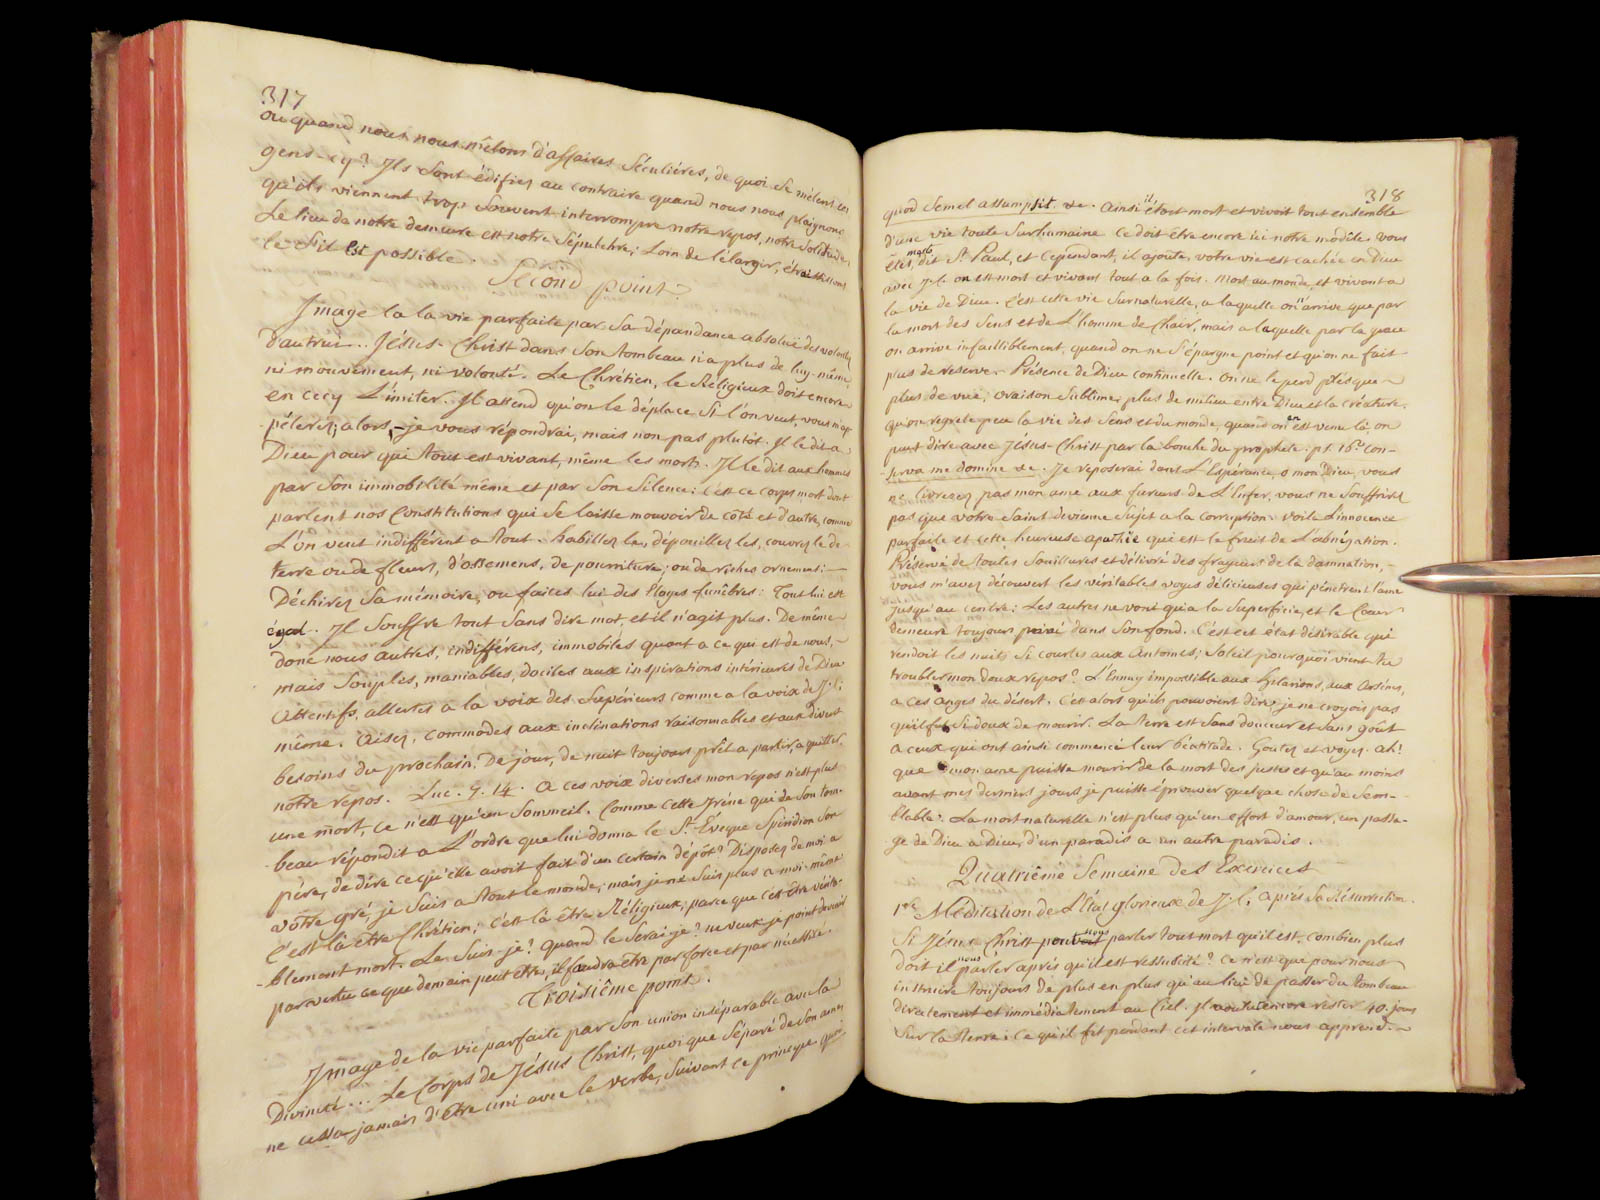 317
ou quand nous nous mêlons d'affaires Séculiéres, de quoi se mêlent ces
gens-cy? Ils sont édifiez au contraire quand nous nous plaignons
qu'ils viennent trop souvent interrompre notre repos, notre solitude.
Le lieu de notre demeure est notre Sépulchre; Loin de l'élargir, étraississons
le s'il est possible.
Second point.
Image la la vie parfaite par Sa dépandance absoluë des volontés
d'autrui.. Jésus-Christ dans Son tombeau n'a plus de luy-même
ni mouvement, ni volonté. Le Chrétien, le Réligieux doit encore
en cecy L'imiter. Il attend qu'on le déplace Si l'on veut, vous m'ap-
-pélerez; alors, je vous répondrai, mais non pas plutôt. Il le dit a
Dieu pour qui tout est vivant, même les morts. Il le dit aux hommes
par Son immobilité même et par Son Silence: c'est ce corps mort dont
parlent nos Constitutions qui Se laisse mouvoir de côté et d'autre, comme
L'on veut indifférent a tout. habillez les, dépouillez les, couvrez le de
terre ou de fleurs, d'ossemens, de pourriture; ou de riches ornemens:
Déchirez Sa mémoire, ou faites lui des Eloges funêbres: Tout lui est
égal. Il Souffre tout Sans dire mot, et il n'agit plus. De même
donc nous autres, indifférens, immobiles quant a ce qui est de nous,
mais Souples, maniables, dociles aux inspirations intérieures de Dieu
Attentifs, allertes a la voix des Supérieurs comme a la voix de J.C.
même. Aisez, commodes aux inclinations raisonnables et aux divers
besoins du prochain. De jour, de nuit toujours prêt a partir, a quitter
notre repos. Luc. 9. 14. A ces voix diverses mon repos n'est plus
une mort, ce n'est qu'un Sommeil. Comme cette Iréne qui de Son tom-
-beau répondit a L'ordre que lui donna le St. Évêque Spiridion Son
pére, de dire ce qu'elle avoit fait d'un certain dépôt? Disposez de moi a
vôtre gré, je Suis a tout le monde; mais je ne Suis plus a moi-même
C'est là être Chrétien; C'est là être Réligieux, parce que c'est être vérita-
-blement mort. Le Suis-je? quand le Serai-je? ne veux-je point devenir
par vertu ce que demain peut être, il faudra être par force et par nécessité.
Troisiême point.
Image de la vie parfaite par Son union inséparable avec la
Divinité... Le Corps de Jésus Christ, quoique Séparé de Son ame
ne cessa jamais d'être uni avec le verbe, Suivant ce principe quod
318
quod Semel assumpsit &c. Ainsi il étoit mort et vivoit tout ensemble
d'une vie toute Surhumaine Ce doit être encore ici notre modêle. vous
êtes morts, dit St. Paul, et cependant, il ajoute, votre vie est cachée en Dieu
avec J.C. on est mort et vivant tout a la fois. Mort au monde, et vivant a
la vie de Dieu. C'est cette vie Surnaturelle, a laquelle on n'arrive que par
la mort des Sens et de L'homme de Chair, mais a laquelle par la grace
on arrive infailliblement, quand on ne S'épargne point et qu'on ne fait
plus de reserve. Présence de Dieu continuelle. on ne le perd présque
plus de vuë; oraison Sublime, plus de milieu entre Dieu et la créature.
qu'on regrete peu la vie des Sens et du monde, quand on en est venu là; on
peut dire avec Jésus-Christ par la bouche du prophete: ps. 15. Con-
serva me domine &c. Je reposerai dans L'Espérance, o mon Dieu, vous
ne livrerez pas mon ame aux fureurs de L'Enfer, vous ne Souffrirez
pas que votre Saint devienne Sujet a la corruption. voila L'innocence
parfaite et cette heureuse apathie qui est le fruit de L'abnégation.
Préservé de toutes Souillures et délivré des frayeurs de la damnation,
vous m'avez découvert les véritables voyes délicieuses qui pénétrent l'ame
jusqu'au centre: Les autres ne vont qu'a la Superficie, et le Coeur
demeure toujours privé dans Son fond. C'est cet état désirable qui
rendoit les nuits Si courtes aux Antoines; Soleil pourquoi viens tu
troubler mon doux repos? L'Ennuy impossible aux Hilarions, aux Arsénes,
a ces Anges du désert. C'est alors qu'ils pouvoient dire; je ne croyois pas
qu'il fut Si doux de mourir. La terre est Sans douceur et Sans goût
a ceux qui ont ainsi commencé leur béatitude. Goutez et voyez. Ah!
que mon ame puisse mourir de la mort des justes et qu'au moins
avant mes derniers jours je puisse éprouver quelque chose de Sem-
-blable. La mort naturelle n'est plus qu'un effort d'amour, un passa-
-ge de Dieu a Dieu, d'un paradis a un autre paradis.
Quatriême Semaine des Exercices
1re Méditation de L'état glorieux de J.C. aprés Sa Résurrection.
Si Jésus Christ pouvoit nous parler tout mort qu'il est, combien plus
doit il nous parler aprés qu'il est ressuscité? Ce n'est que pour nous
instruire toujours de plus en plus qu'au lieu de passer du tombeau
directement et immédiatement au Ciel. Il voulut encore rester 40. jours
Sur la terre: ce qu'il fit pendant cet intervale nous apprend.